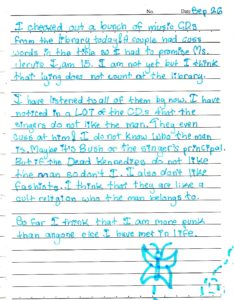 No. Date Sep 26
I checked out a bunch of music CDs
from the library today. A couple had cuss
words in the title so I had to promise Ms.
Jervis I am 15. I am not yet but I think
that lying does not count at the library.
I have listened to all of them by now. I have
noticed in a LOT of the CDs that the
singers do not like the man. They even
cuss at him! I do not know who the man
is. Maybe it's Bush or the singer's principal.
But if the Dead Kennedies do not like
the man so don't I. I also don't like
fashists. I think that they are like a
cult religion who the man belongs to.
So far I think that I am more punk
than anyone else I have met in life.